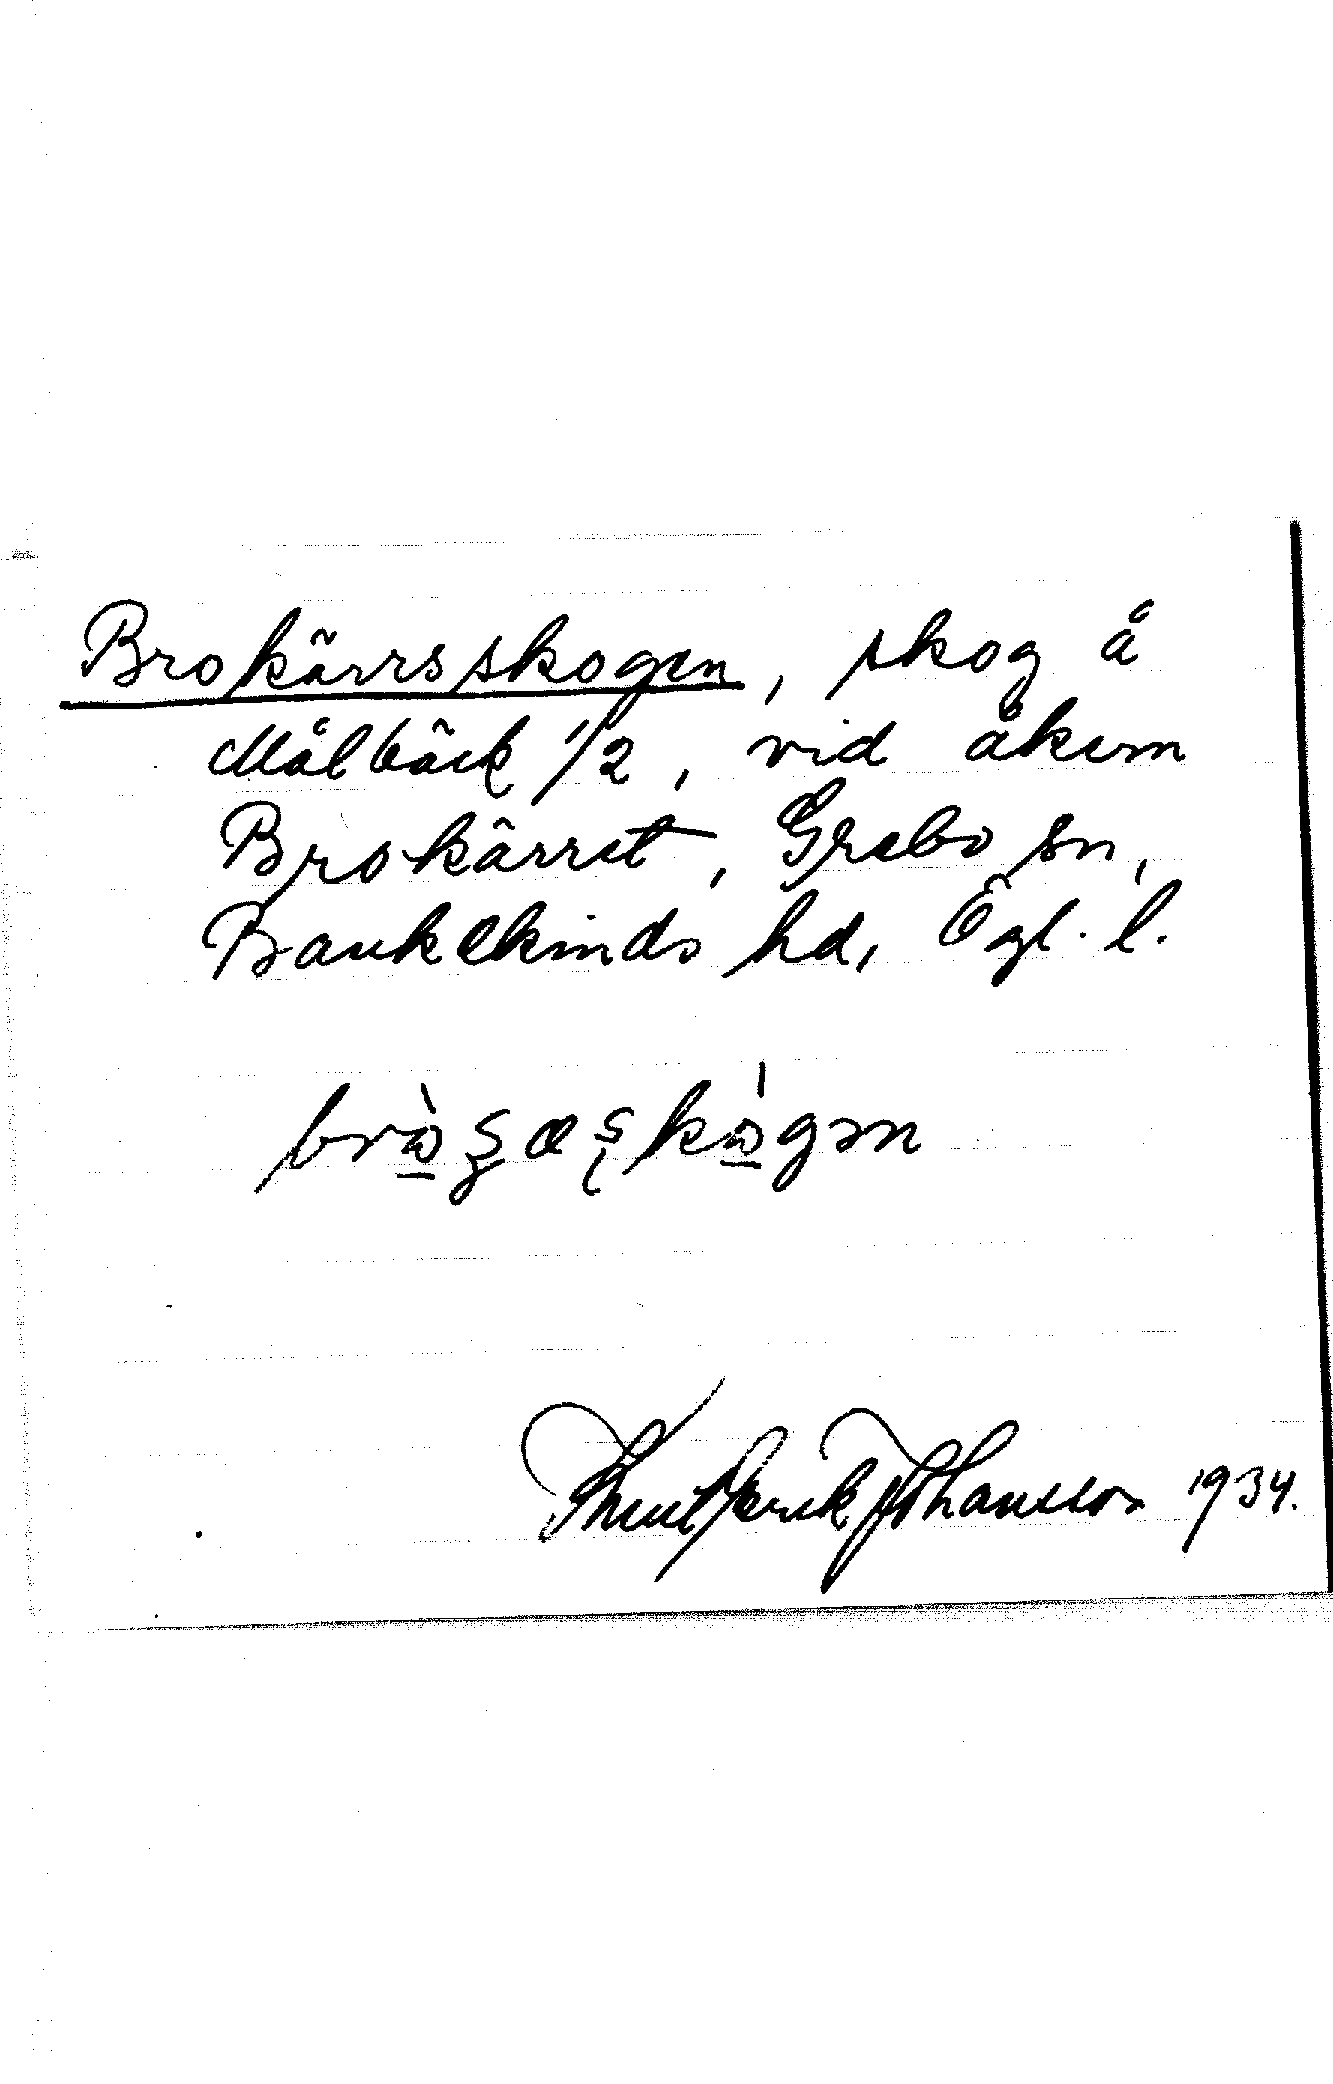 Brokärrsskogen, skog å
Målbäck 1/2, vid åkern
Brokärret, Grebo sn,
Bankekinds hd, Ögl. l.
Knut Erik Johansson 1934.